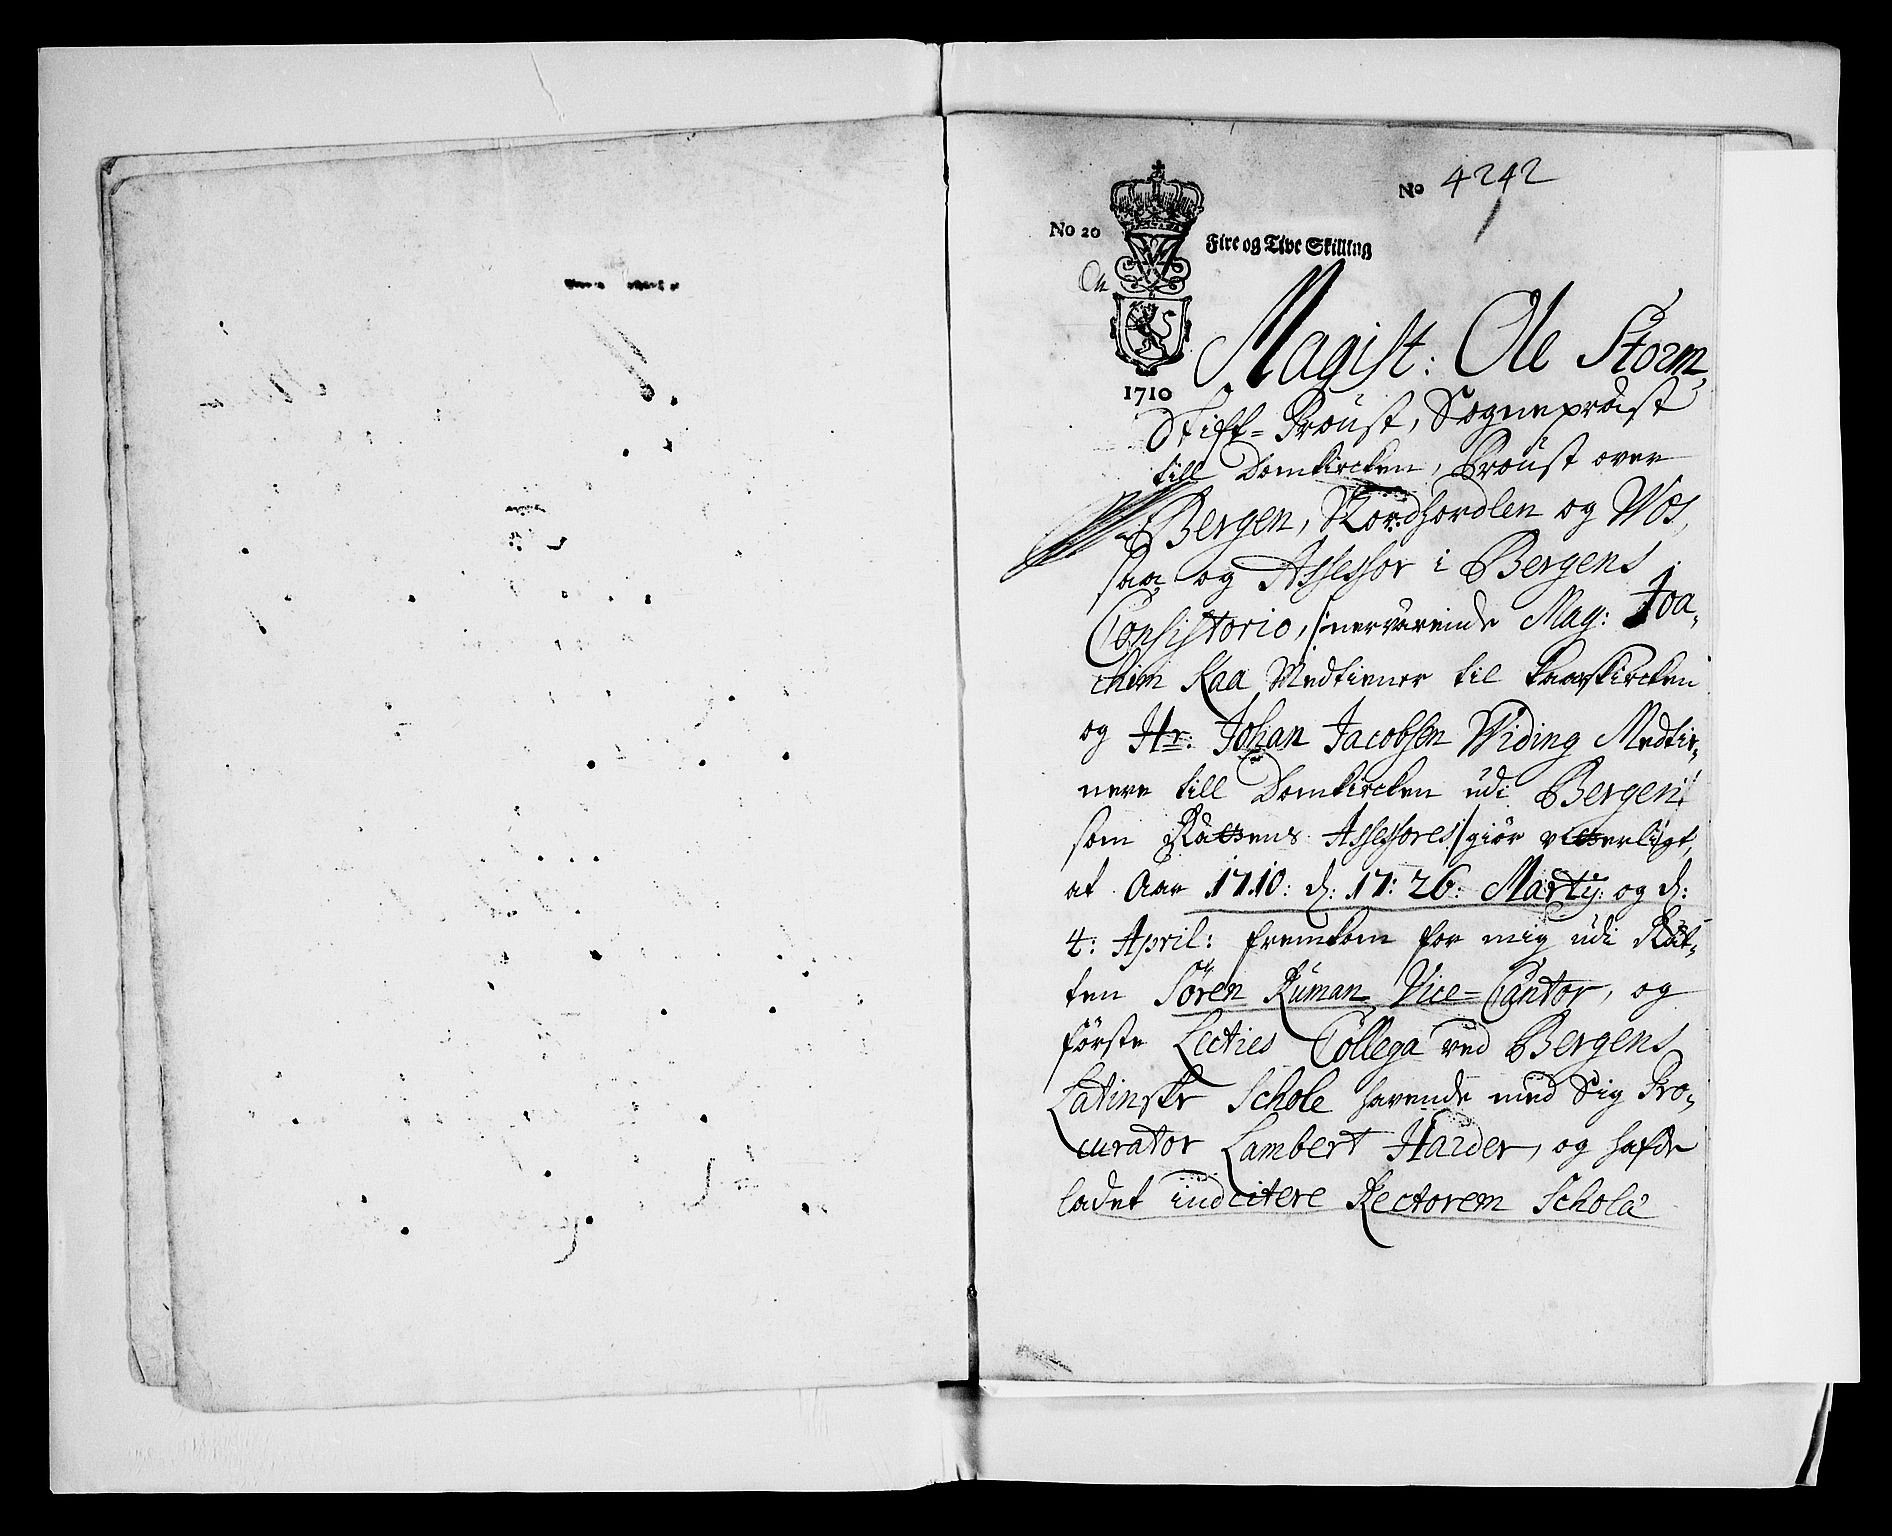 No 4242
No 20
Fire og Tive Skilling
1710
Magist: Ole Storm,
Stiff-Proust, Sognepræst
till Domkircken, Proust over
Bergen, Nordhordlen og Wos,
saa og Assessor i Bergens
Consistorio, /: nerværende Mag: Joa,
chim Kaa Medtiener til Kaarskircken
og Hr: Johan Jacobsen Widing Medtie,
nere till Domkircken udi Bergen
som Rættens Assessores / giør vitterligt,
at Aar 1710: d: 17: 26: Martij: og d:
4: April: fremkom for mig udi Ræt,
ten Søren Ruman Vice-Cantor, og
første Lecties Collega ved Bergens
Latinske Schole havende med Sig Pro,
curator Lambert Harder, og hafde
ladet indcitere Rectorem Scholæ